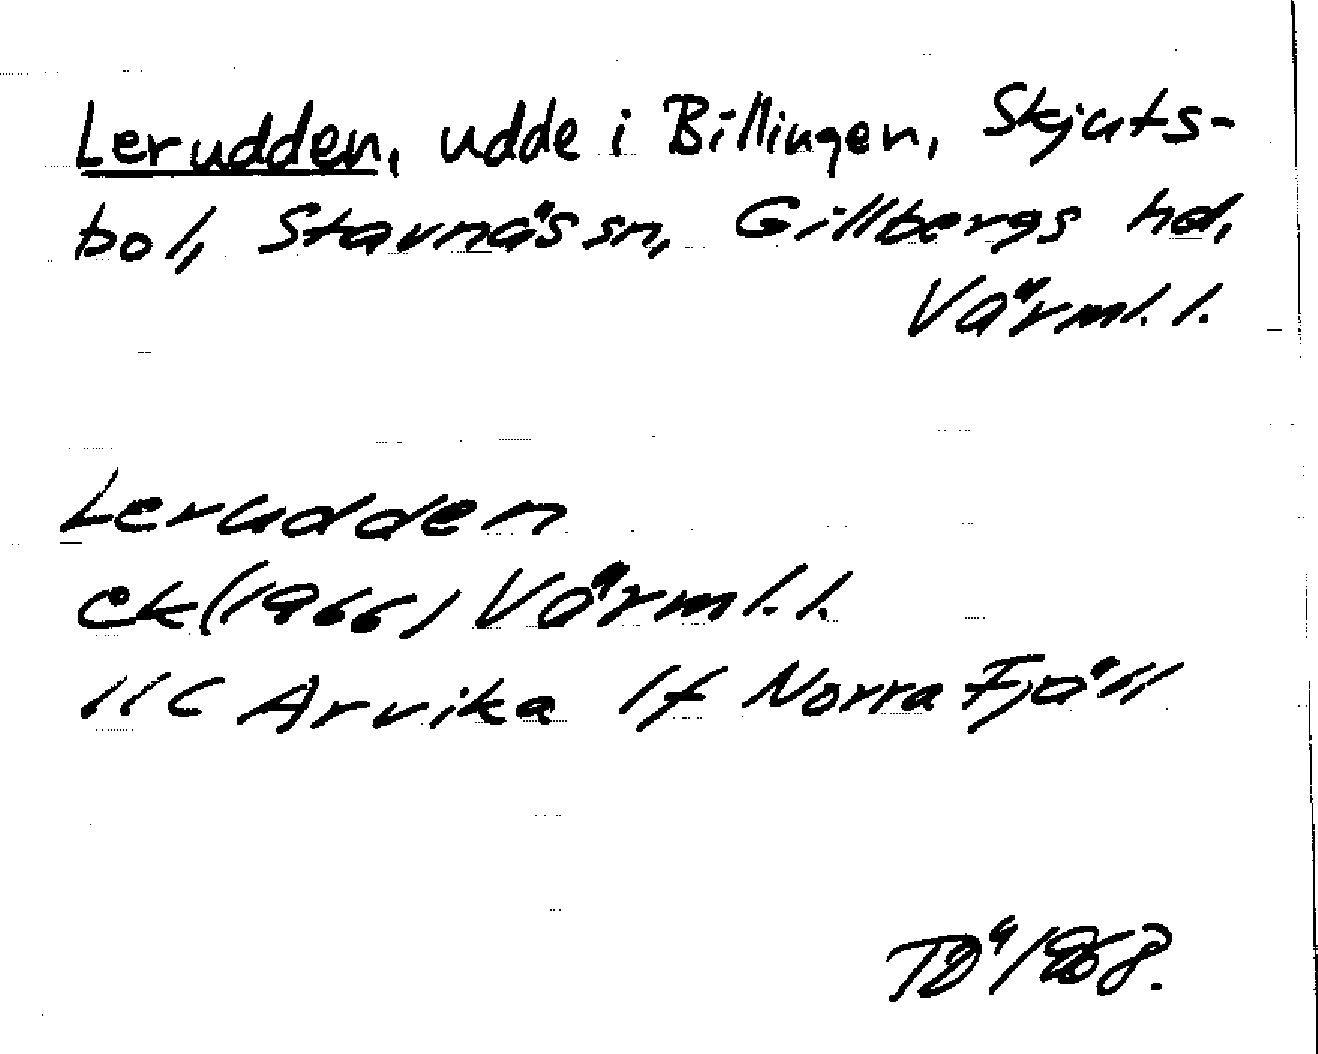 Lerudden, udde i Billingen, Skjuts-
bol, Stavnäs sn, Gillbergs hd,
Värml. l.
Lerudden
ek (1966) Värml. l.
11C Arvika 1f Norra Fjäll
TÖ 1968.